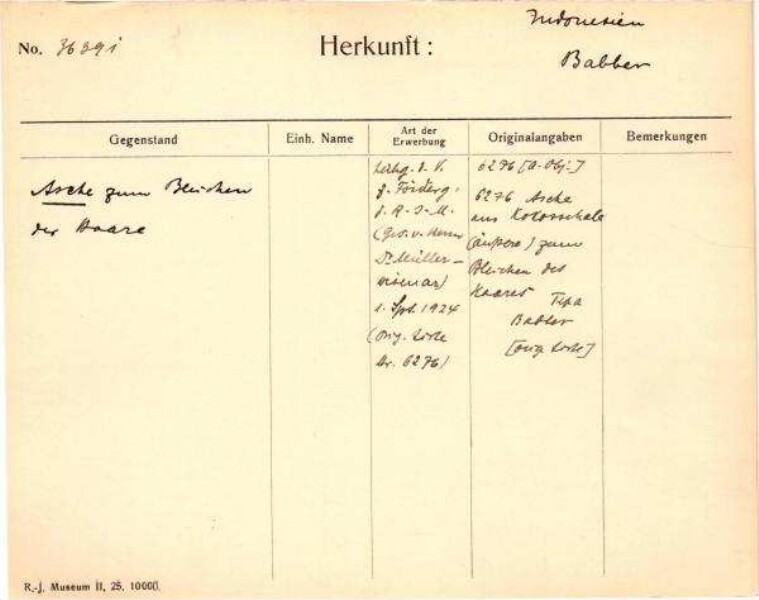 Indonesien
No. 36391
Herkunft :
Babber
Gegenstand
Einh. Name
Art der Erwerbung
Originalangaben
Bemerkungen
Asche zum Bleichen
der Haare
d. V.
z. Förderg.
d. R-J-M.
(Ges. v. Herrn
Dr Müller-
Wismar)
1. Spt. 1924
(Orig. Liste
Nr. 6276)
6276 [a. Obj.]
6276 Asche
aus Kokosschale
(äußere) zum
Bleichen des
Haares Tepa
Babber
[Orig Liste]
R.-J. Museum II, 25. 10000.